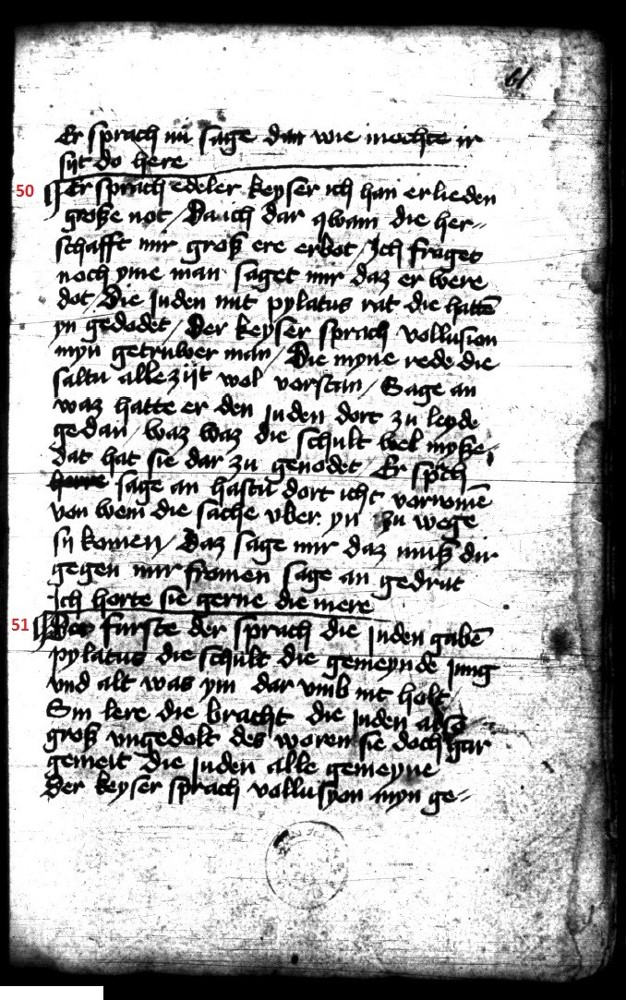 61
Er sprach nü sage dan wie mochte ir
sijt do here
50 Er sprach edeler keyser ich han erlieden
große not / Da ich dar qwam die her-
schafft mir groß ere erbot / Ich fraget
noch yme man saget mir daz er were
dot / Die Juden mit pylatus rat die hattē
yn gedodet / Der keyser sprach vollusion
myn getruwer man / Die myne rede die
saltu alle zijt wol vorstan / Sage an
waz hatte er den Juden dort zu leyde
gedan / waz waz die schult
dat hat sie dar zu genodet / Er sp͛ch
herre sage an hastu dort icht vornomē
von wem die sache vber yn zu wege
sij komen / Daz sage mir daz muß dir
gegen mir fromen sage an gedrut
Ich horte sie gerne die mere
51 Der furste der sprach die Juden gabē
pylatus die schult die gemeynde Jung
vnd alt was ym dar vmb nit holt /
Sin lere die bracht die Juden also
groß vngedolt des woren sie doch gar
gemeit die Juden alle gemeyne
Der keyser sprach vollusyon myn ge-